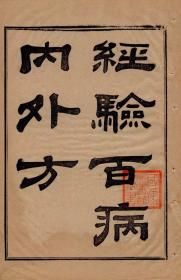 經驗百病
內外方